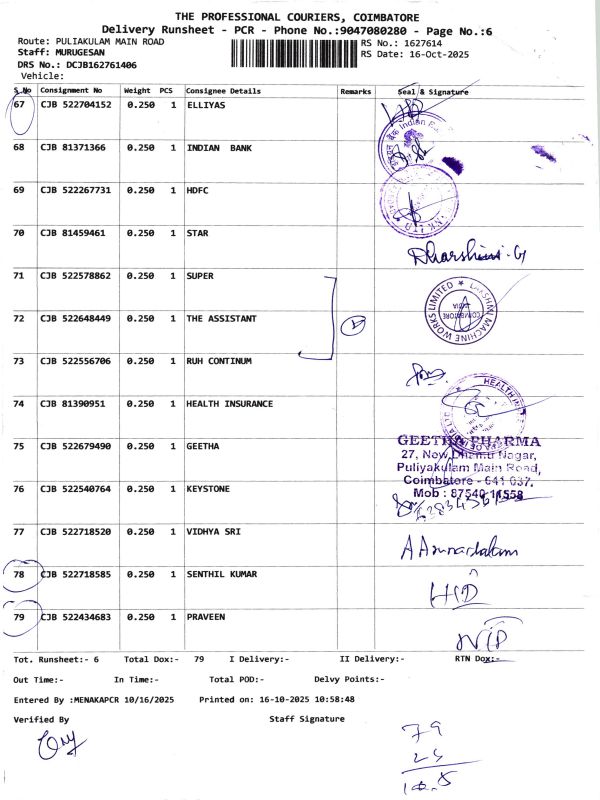 THE PROFESSIONAL COURIERS, COIMBATORE
Delivery Runsheet - PCR - Phone No.:9047080280 - Page No.:6
Route: PULIAKULAM MAIN ROAD
RS No.: 1627614
Staff: MURUGESAN
RS Date: 16-Oct-2025
DRS No.: DCJB162761406
Vehicle:
S.No Consignment No Weight PCS Consignee Details Remarks Seal & Signature
67 CJB 522704152 0.250 1 ELLIYAS
68 CJB 81371366 0.250 1 INDIAN BANK
69 CJB 522267731 0.250 1 HDFC
70 CJB 81459461 0.250 1 STAR
Dharshini. G
71 CJB 522578862 0.250 1 SUPER
72 CJB 522648449 0.250 1 THE ASSISTANT
LAKSHMI MACHINE WORKS LIMITED
COIMBATORE
INDIA
73 CJB 522556706 0.250 1 RUH CONTINUM
74 CJB 81390951 0.250 1 HEALTH INSURANCE
75 CJB 522679490 0.250 1 GEETHA
GEETHA PHARMA
27, New Dhamu Nagar,
Puliyakulam Main Road,
Coimbatore - 641 037.
Mob : 87540 11558
76 CJB 522540764 0.250 1 KEYSTONE
77 CJB 522718520 0.250 1 VIDHYA SRI
78 CJB 522718585 0.250 1 SENTHIL KUMAR
79 CJB 522434683 0.250 1 PRAVEEN
Tot. Runsheet:- 6 Total Dox:- 79 I Delivery:- II Delivery:- RTN Dox:-
Out Time:- In Time:- Total POD:- Delvy Points:-
Entered By :MENAKAPCR 10/16/2025 Printed on: 16-10-2025 10:58:48
Verified By Staff Signature
79